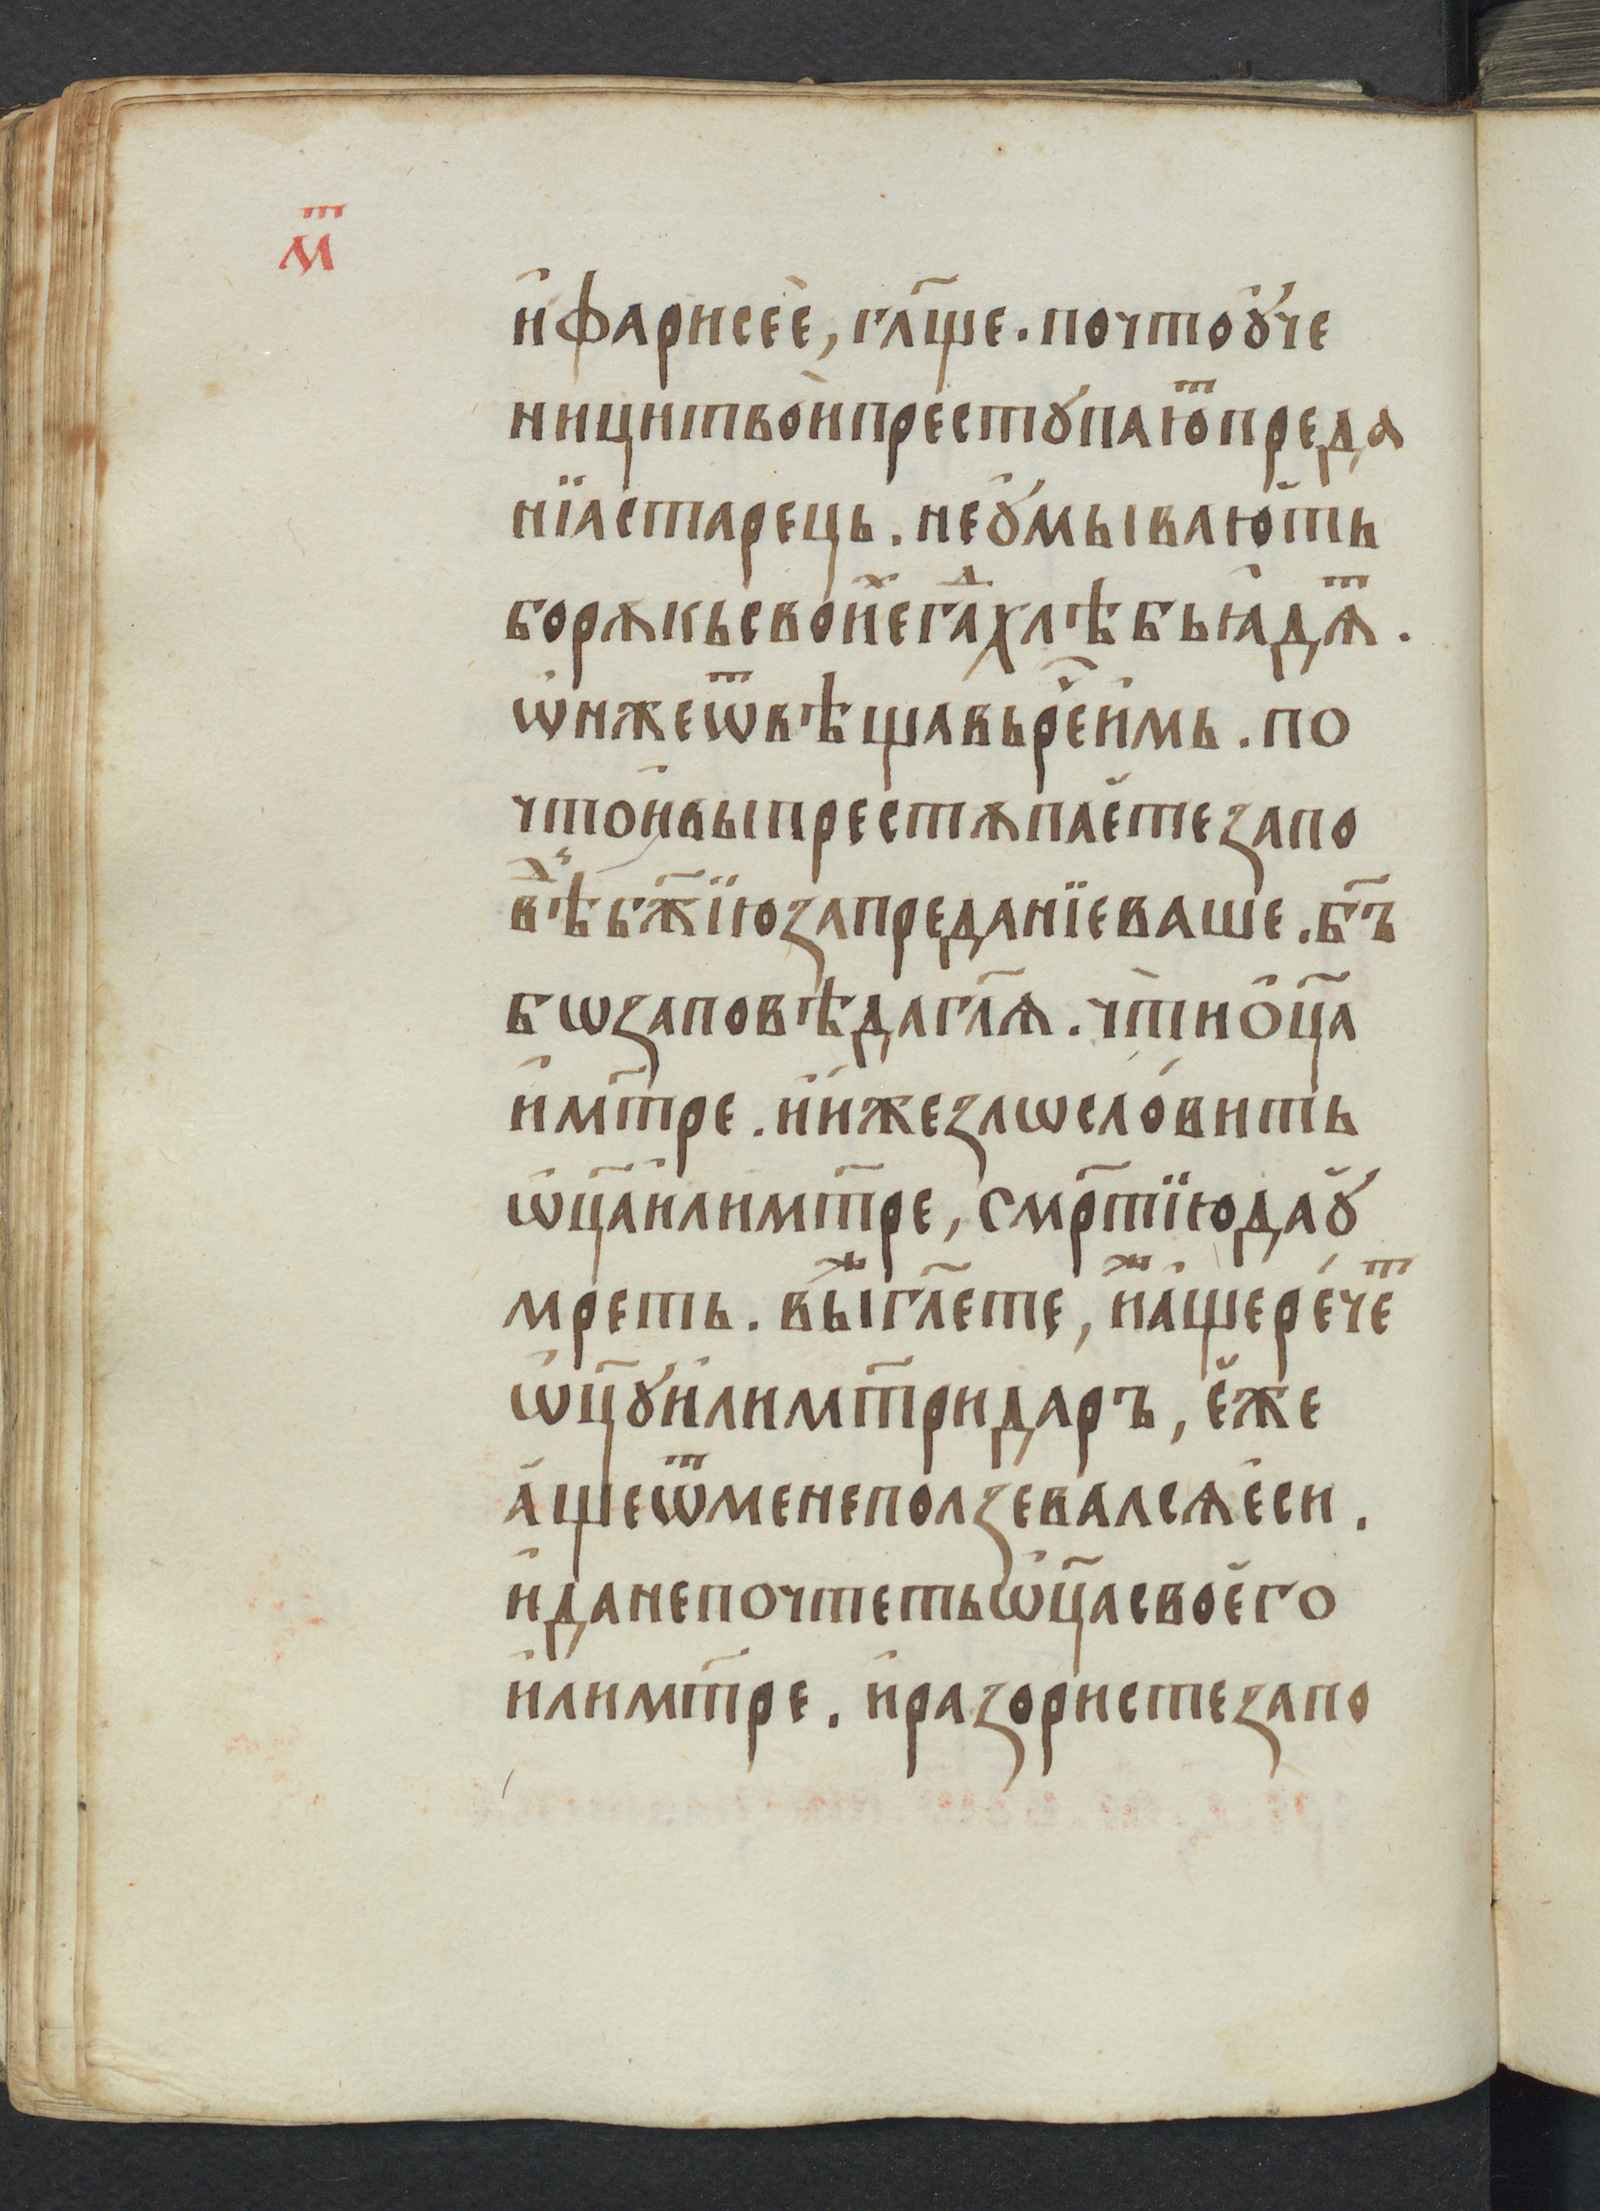 мⷮ
и҆фарисеѐ, гл҃ще. почтоу҆́че
ницитвоѝпрестꙋпаюⷮ҇преда
нїастарець. неꙋ҆́мываюⷮть
борѫкьсвоⷯи҆егⷣа҆хлѣбьꙗ҆дѧⷮ.
ѡ҆нижеѿвѣщавьрⷱ҇еи҆мь. по
чтои҆выпрестѫпаѐтезапо
вѣⷣбж҃їюзапреданїеваше. бг҃ъ
бѡзаповѣдагл҃ѧ. чт҃ио҆ц҃а
и҆мт҃ре. и҆и҆жезлѡсло́вить
ѡ҆ц҃аи҆лимт҃ре, смр҃тїюдаꙋ҆́
мреть. выⷤгл҃ете, и҆ⷤа҆щере́чеⷮ
ѡ҆ц҃ꙋи҆лимт҃ридаръ, е҆же
а҆щеѿменеползевалсѧе҆си.
и҆данепочтетьѡ҆ц҃асвоѐго
и҆лимт҃ре. и҆разористезапо